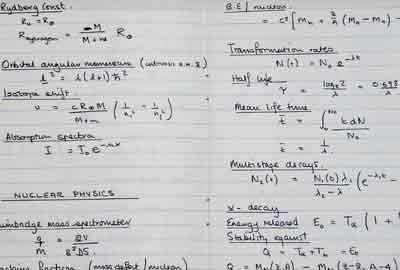 Rydberg Const.
R₀ = R∞
R hydrogen = M / M+m R∞
Orbital angular momentum (intrinsic a.m. s)
l² = l(l+1)ħ²
Isotope shift.
ν = cR∞M / M+m (1/n₁² - 1/n₂²)
Absorption spectra
I = I₀e^-nσx
NUCLEAR PHYSICS
mass spectrometer
q/M = 2V / B²DS.
fraction (mass defect / nucleon)
B.E / nucleon
= c² [Mn + Z/A (MH - Mn) -
Transformation rates
N(t) = N₀ e^-λt
Half life
τ = loge2 / λ = 0.693 / λ
Mean life time
t̄ = ∫₀^N₀ t dN / N₀
t̄ = 1/λ
Multistage decays.
N₂(t) = N₁(0)λ₁ / λ₂ - λ₁ (e^-λ₁t -
α - decay
Energy released E₀ = Tα (1 +
Stability against
Q = Tα + Tb = E₀
Q = M(Z,A) - M(Z-2, A-4)